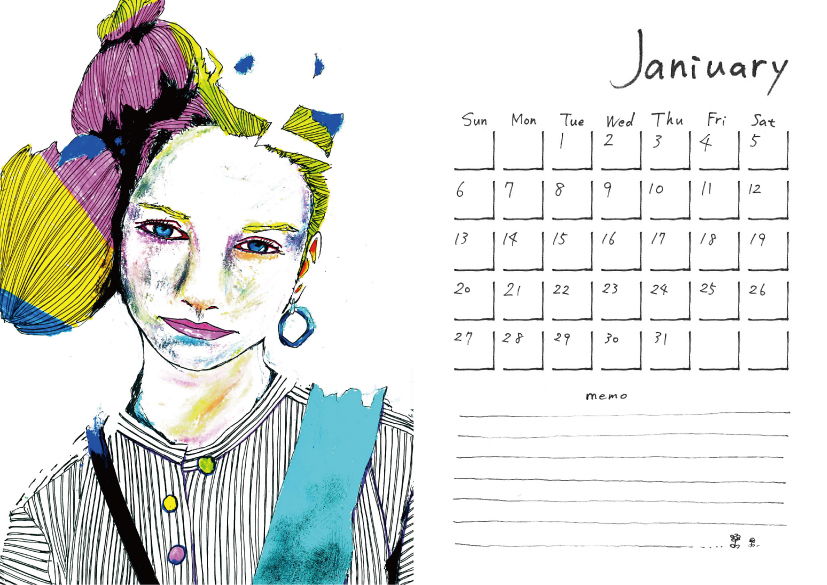 Janiuary
Sun Mon Tue Wed Thu Fri Sat
1 2 3 4 5
6 7 8 9 10 11 12
13 14 15 16 17 18 19
20 21 22 23 24 25 26
27 28 29 30 31
memo